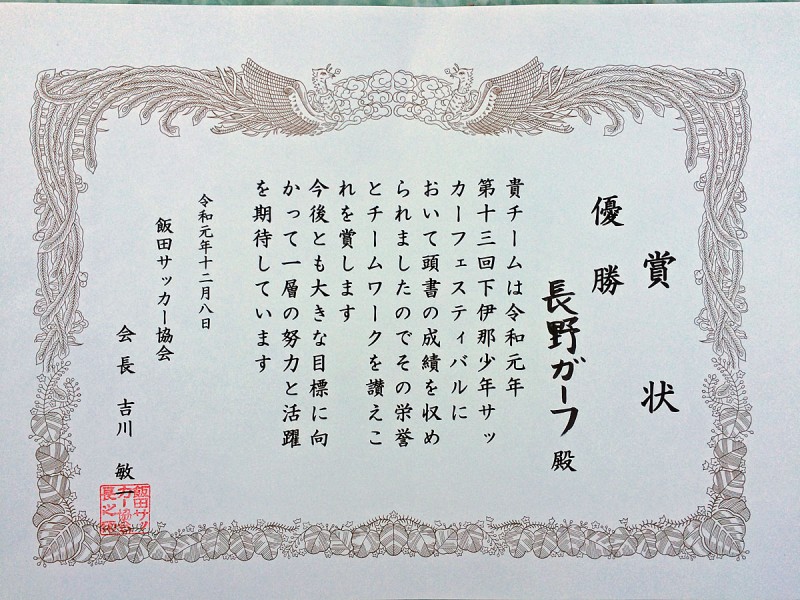 賞状
優勝
長野ガーフ殿
貴チームは令和元年
第十三回下伊那少年サッ
カーフェスティバルに
おいて頭書の成績を収め
られましたのでその栄誉
とチームワークを讃えこ
れを賞します
今後とも大きな目標に向
かって一層の努力と活躍
を期待しています
令和元年十二月八日
飯田サッカー協会
会長 吉川 敏一
飯田サッ
カー協会
長之印